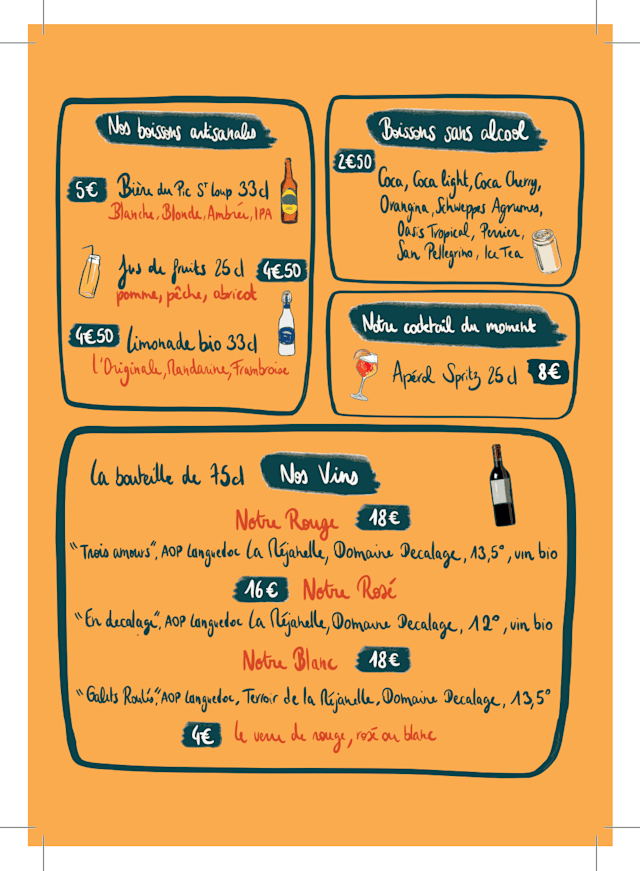 Nos boissons artisanales
5€ Bière du Pic St Loup 33cl
Blanche, Blonde, Ambrée, IPA
Jus de fruits 25cl 4€50
pomme, pêche, abricot
4€50 Limonade bio 33cl
l'Originale, Mandarine, Framboise
Boissons sans alcool
2€50
Coca, Coca light, Coca Cherry,
Orangina, Schweppes Agrumes,
Oasis Tropical, Perrier,
San Pellegrino, Ice Tea
Notre cocktail du moment
Apérol Spritz 25cl 8€
La bouteille de 75cl Nos Vins
Notre Rouge 18€
"Trois amours", AOP Languedoc La Méjanelle, Domaine Decalage, 13,5°, vin bio
16€ Notre Rosé
"En decalage", AOP Languedoc La Méjanelle, Domaine Decalage, 12°, vin bio
Notre Blanc 18€
"Galets Roulés", AOP Languedoc, Terroir de la Méjanelle, Domaine Decalage, 13,5°
4€ le verre de rouge, rosé ou blanc